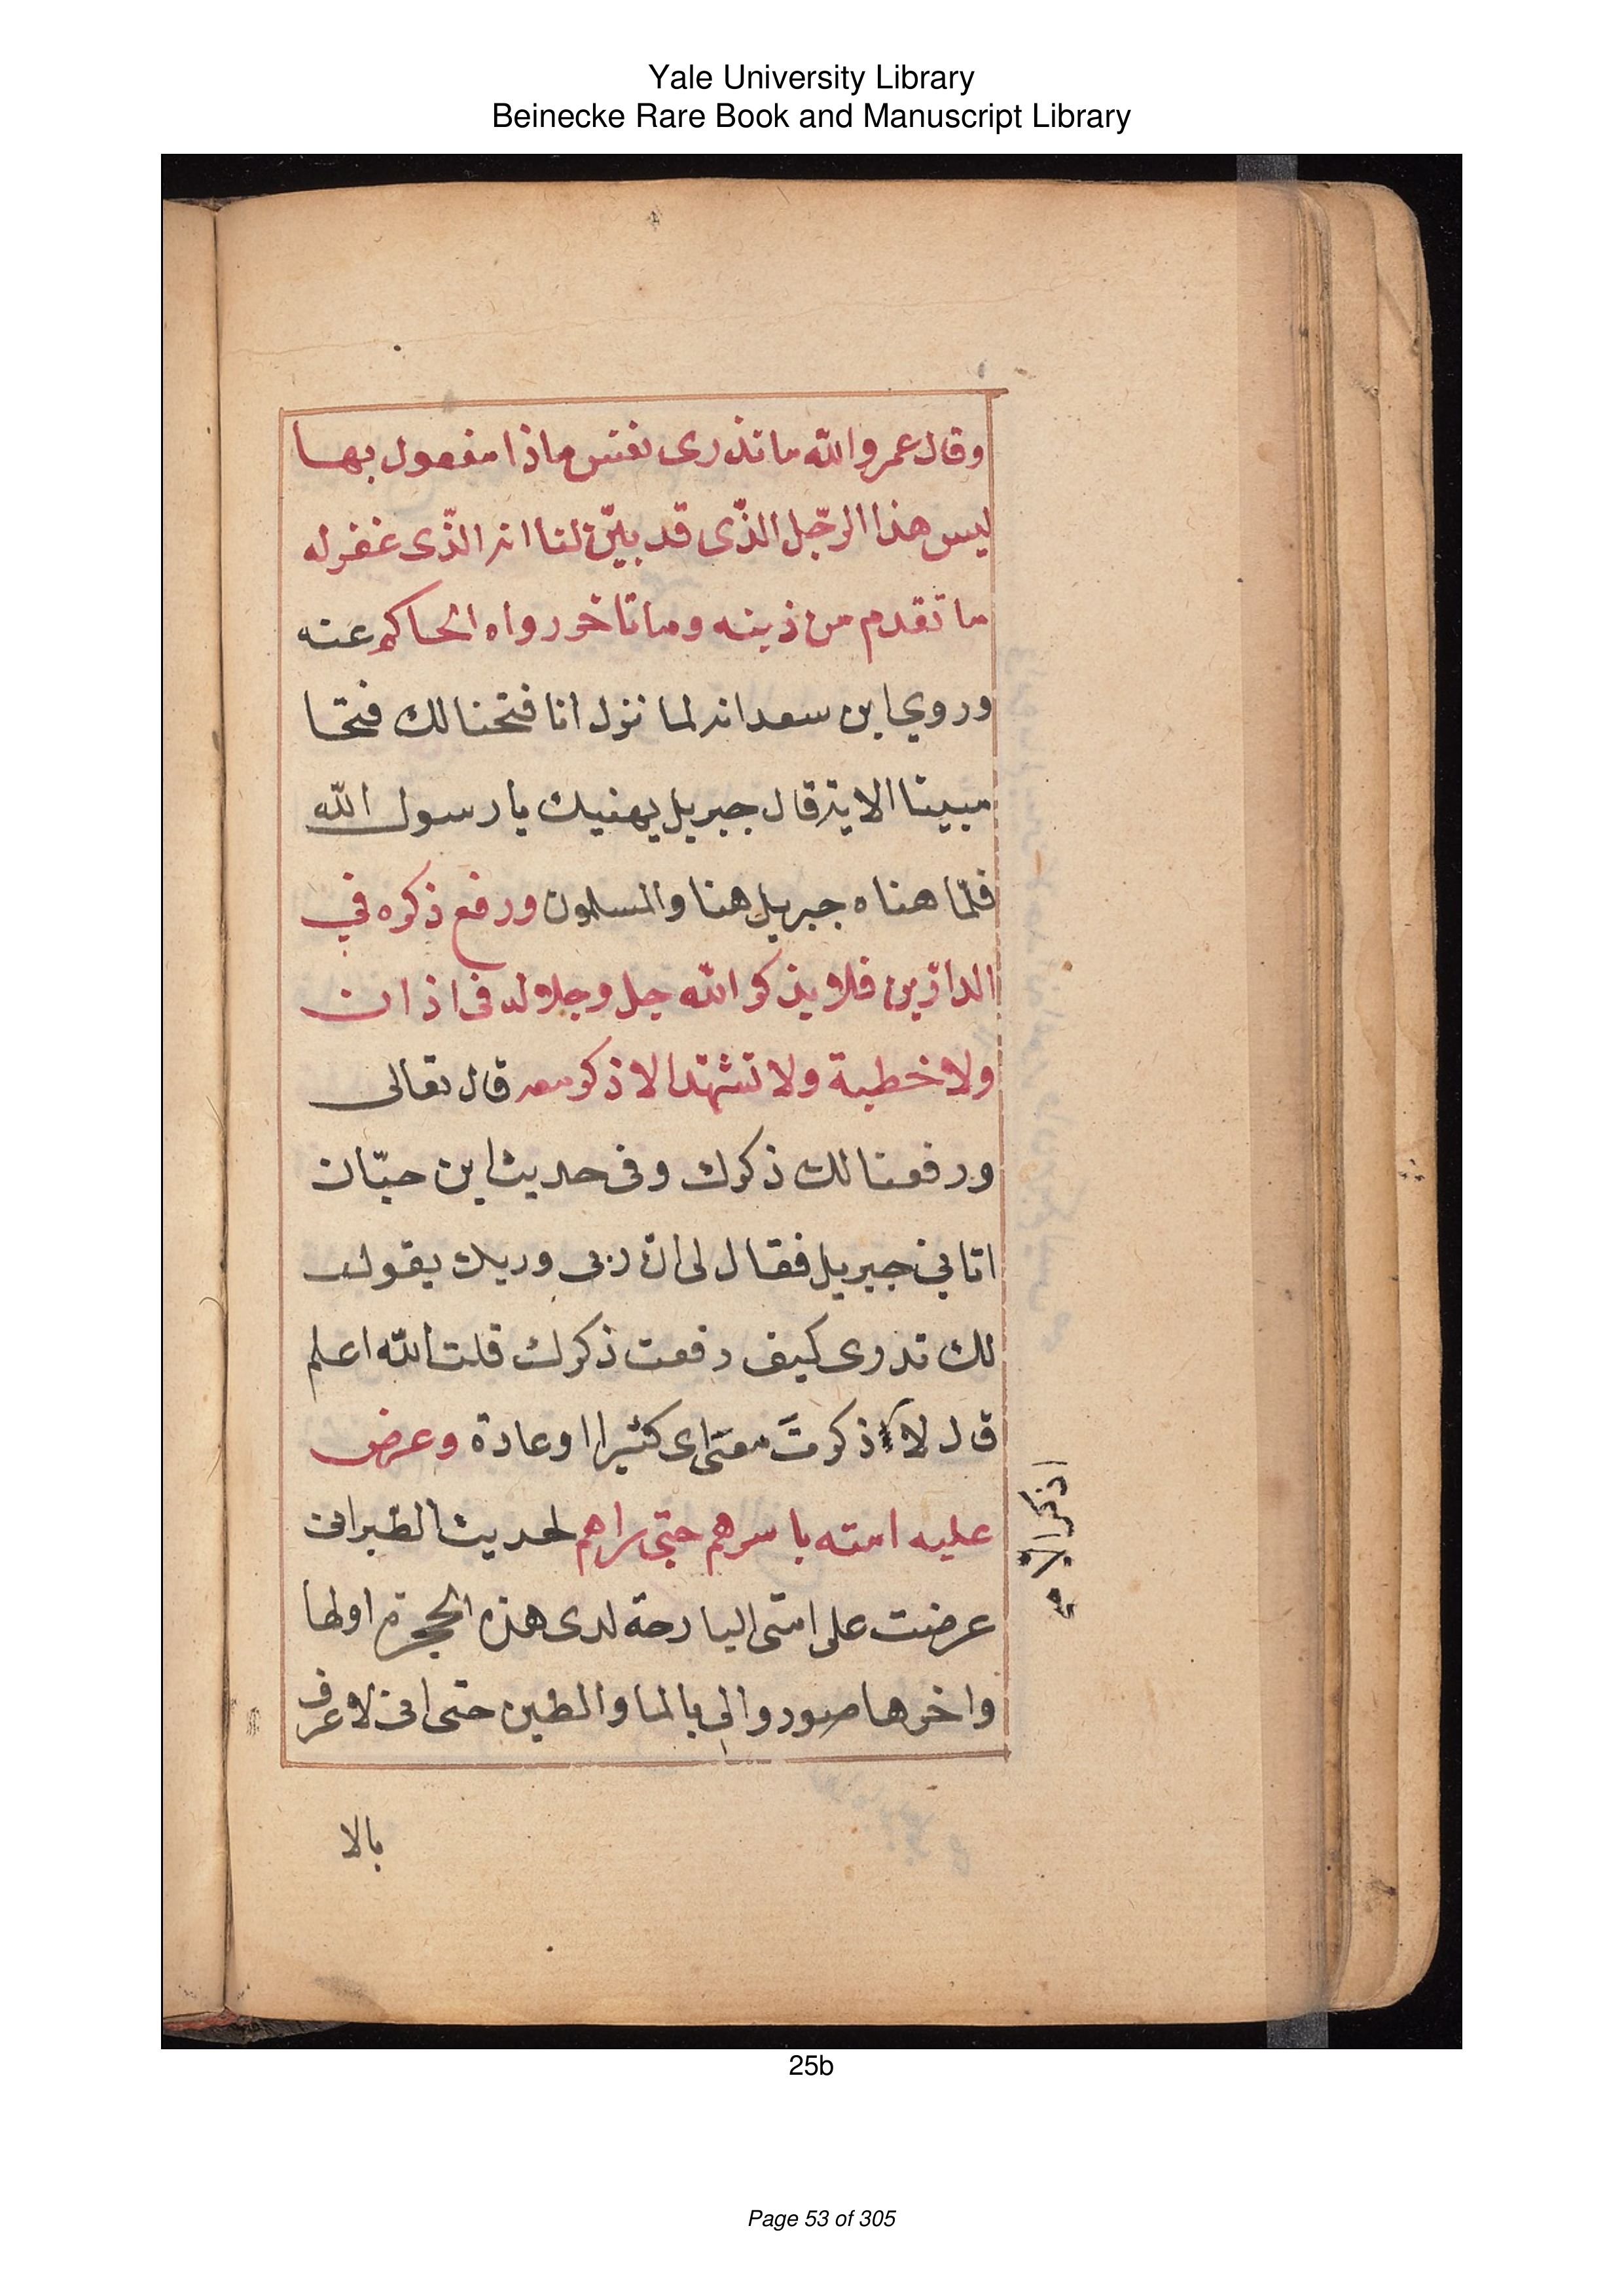 Yale University Library
Beinecke Rare Book and Manuscript Library
وقال عمر والله ما تذرى نفس ماذا مفعول بها
ليس هذا الرّجل الذّى قد بيّن لنا انه الذّى غفر له
ما تقدم من ذنبه وما تاخر رواه الحاكم عنه
وروي ابن سعد انه لما نزل انا فتحنا لك فتحا
مبينا الاية قال جبريل يهنيك يا رسول الله
فلمّا هناه جبريل هناه المسلمون ورفع ذكره في
الدارّين فلا يذكر الله جل وجلا له فى اذان
ولا خطبة ولا تشهّد الا ذكر معه قال تعالى
ورفعنا لك ذكرك وفى حديث ابن حبّان
اتاني جبريل فقال لى انّ ربى وربك يقول
لك تدرى كيف رفعت ذكرك قلت الله اعلم
قال لا ذكرتَ معى اى كثيرا او عادة وعرض
عليه امته باسرهم حتى راهم لحديث الطبرانى
عرضت على امتى البارحة لدى هذه الحجرة اولها
واخرها صوروا لى بالما والطين حتى انى لاعرف
اذكر الا
بالا
25b
Page 53 of 305